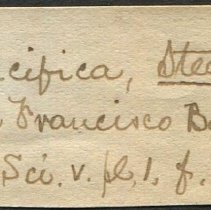 cifica, Stea
Francisco Ba
Sci. v. pl. 1. f.